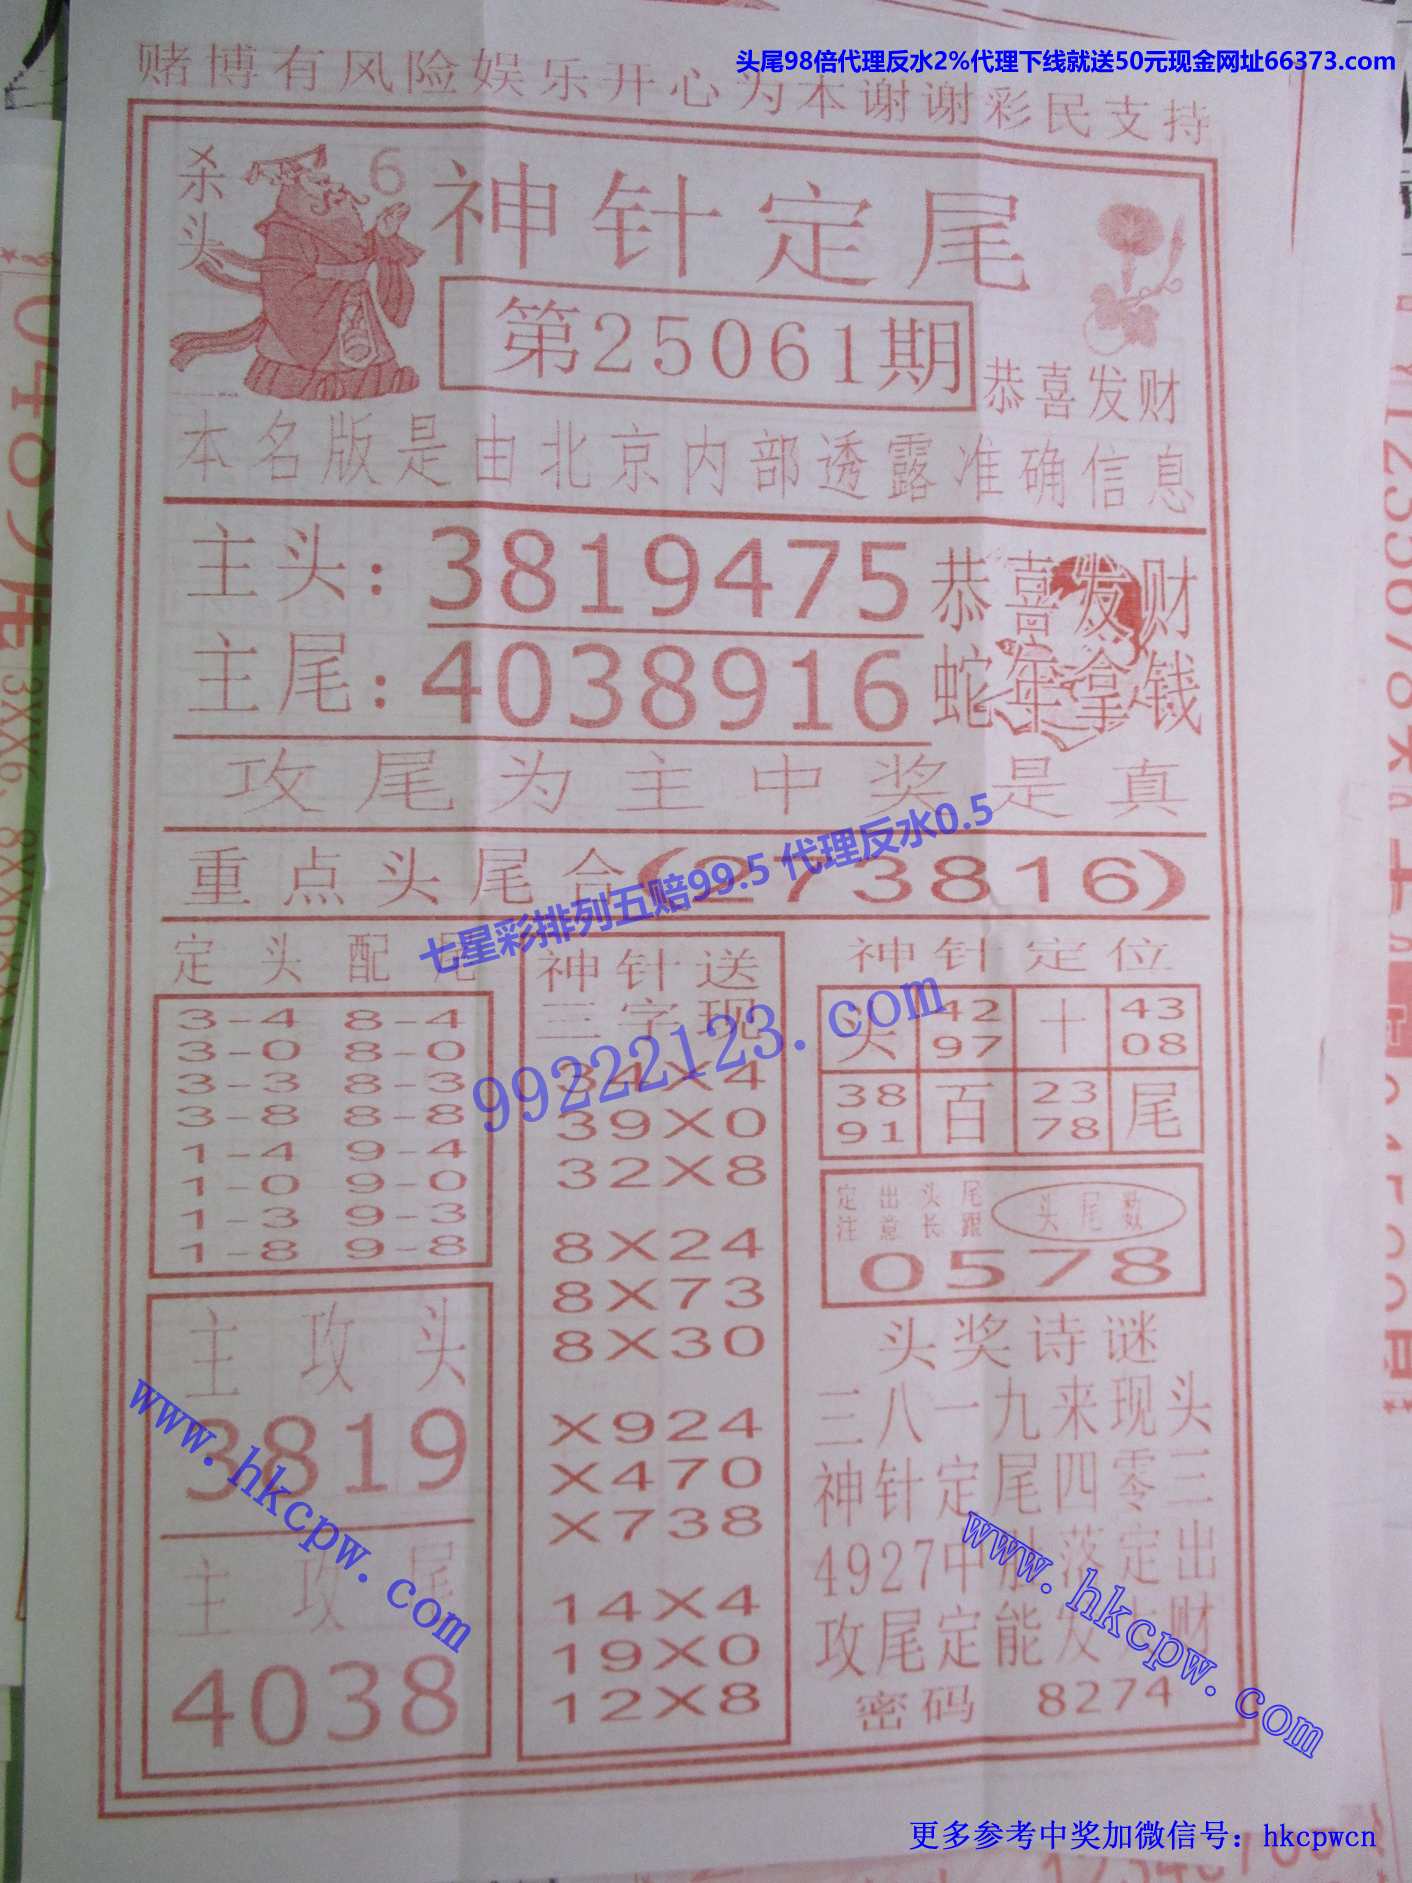 头尾98倍代理反水2%代理下线就送50元现金网址66373.com
赌博有风险娱乐开心为本谢谢彩民支持
杀头 6
神针定尾
第25061期
恭喜发财
本名版是由北京内部透露准确信息
主头:3819475
恭喜发财
主尾:4038916
蛇年拿钱
攻尾为主中奖是真
重点头尾合(273816)
七星彩排列五赔99.5 代理反水0.5
99222123.com
定头配尾
3-4 8-4
3-0 8-0
3-3 8-3
3-8 8-8
1-4 9-4
1-0 9-0
1-3 9-3
1-8 9-8
主攻头
3819
主攻尾
4038
神针送
三字现
34X4
39X0
32X8
8X24
8X73
8X30
X924
X470
X738
14X4
19X0
12X8
神针定位
头 42 十 43
97 08
38 百 23 尾
91 78
定出头尾
注意长跟
头尾数
0578
头奖诗谜
三八一九来现头
神针定尾四零三
4927中肚落定出
攻尾定能发大财
密码 8274
www.hkcpw.com
www.hkcpw.com
更多参考中奖加微信号：hkcpwcn